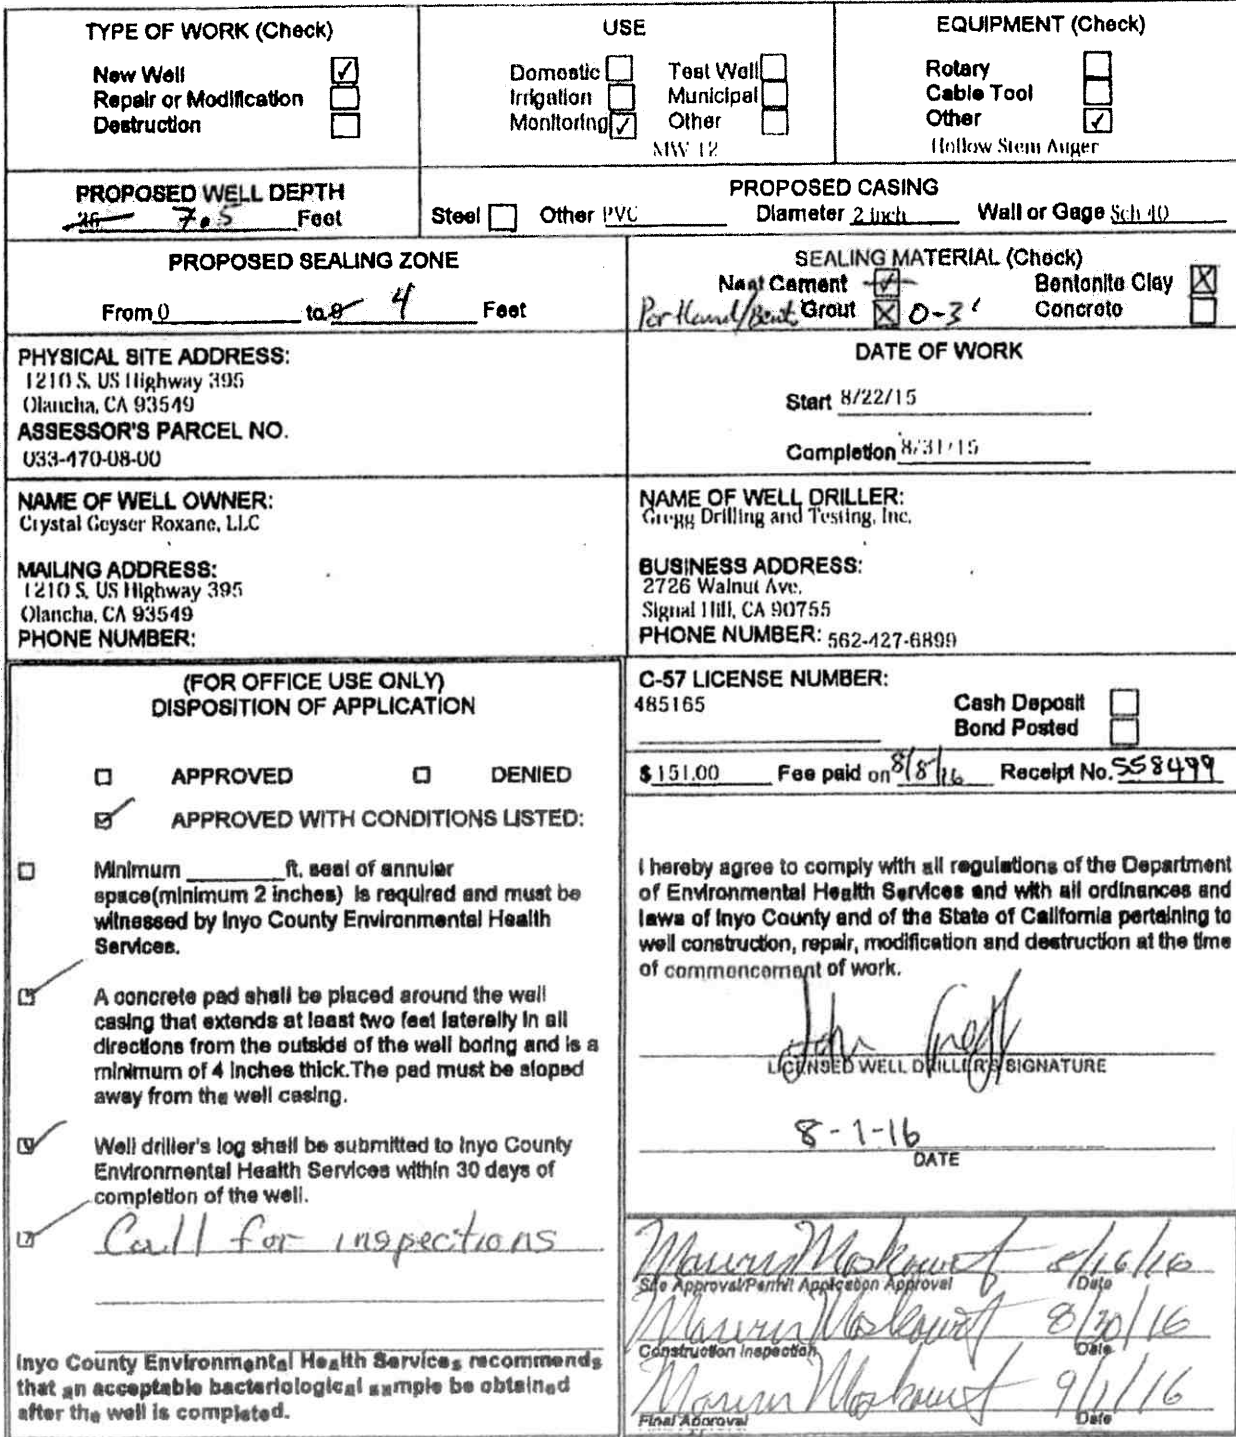 TYPE OF WORK (Check)
New Well ☑
Repair or Modification ☐
Destruction ☐
USE
Domestic ☐ Test Well ☐
Irrigation ☐ Municipal ☐
Monitoring ☑ Other ☐
MW 12
EQUIPMENT (Check)
Rotary ☐
Cable Tool ☐
Other ☑
Hollow Stem Auger
PROPOSED WELL DEPTH
7.5 Feet
PROPOSED CASING
Steel ☐ Other PVC Diameter 2 inch Wall or Gage Sch 40
PROPOSED SEALING ZONE
From 0 to 4 Feet
SEALING MATERIAL (Check)
Neat Cement ☑ Bentonite Clay ☒
Portland/Bent. Grout ☒ 0-3' Concrete ☐
PHYSICAL SITE ADDRESS:
1210 S. US Highway 395
Olancha, CA 93549
ASSESSOR'S PARCEL NO.
033-470-08-00
DATE OF WORK
Start 8/22/15
Completion 8/31/15
NAME OF WELL OWNER:
Crystal Geyser Roxane, LLC
MAILING ADDRESS:
1210 S. US Highway 395
Olancha, CA 93549
PHONE NUMBER:
NAME OF WELL DRILLER:
Gregg Drilling and Testing, Inc.
BUSINESS ADDRESS:
2726 Walnut Ave.
Signal Hill, CA 90755
PHONE NUMBER: 562-427-6899
(FOR OFFICE USE ONLY)
DISPOSITION OF APPLICATION
☐ APPROVED ☐ DENIED
☑ APPROVED WITH CONDITIONS LISTED:
☐ Minimum ________ft. seal of annular
space(minimum 2 inches) is required and must be
witnessed by Inyo County Environmental Health
Services.
☑ A concrete pad shall be placed around the well
casing that extends at least two feet laterally in all
directions from the outside of the well boring and is a
minimum of 4 inches thick.The pad must be sloped
away from the well casing.
☑ Well driller's log shall be submitted to Inyo County
Environmental Health Services within 30 days of
completion of the well.
☑ Call for inspections
Inyo County Environmental Health Services recommends
that an acceptable bacteriological sample be obtained
after the well is completed.
C-57 LICENSE NUMBER:
485165 Cash Deposit ☐
Bond Posted ☐
$ 151.00 Fee paid on 8/8/16 Receipt No. 558499
I hereby agree to comply with all regulations of the Department
of Environmental Health Services and with all ordinances and
laws of Inyo County and of the State of California pertaining to
well construction, repair, modification and destruction at the time
of commencement of work.
John Gregg
LICENSED WELL DRILLER'S SIGNATURE
8-1-16
DATE
Moskowitz 8/16/16
Site Approval/Permit Application Approval Date
Moskowitz 8/30/16
Construction Inspection Date
Moskowitz 9/1/16
Final Approval Date